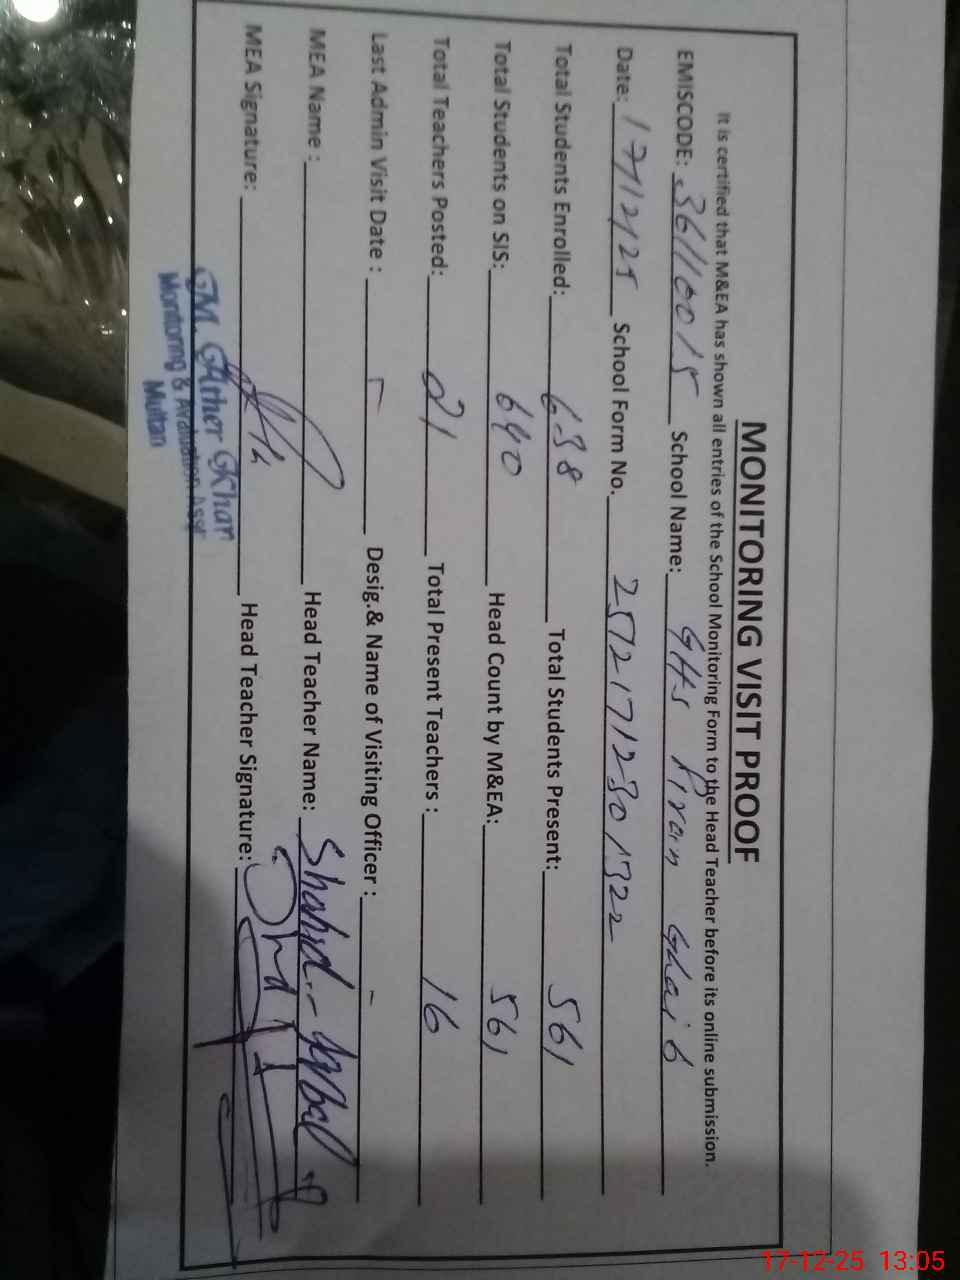 MONITORING VISIT PROOF
It is certified that M&EA has shown all entries of the School Monitoring Form to the Head Teacher before its online submission.
EMISCODE: 36110015 School Name: GHS Piran Ghaib
Date: 17/12/25 School Form No. 25121712301322
Total Students Enrolled: 638 Total Students Present: 561
Total Students on SIS: 640 Head Count by M&EA: 561
Total Teachers Posted: 21 Total Present Teachers : 16
Last Admin Visit Date : - Desig.& Name of Visiting Officer : -
MEA Name : Head Teacher Name: Shahid Iqbal
MEA Signature: Head Teacher Signature:
M. Ather Khan
Monitoring & Avaluation Asst
Multan
17-12-25 13:05